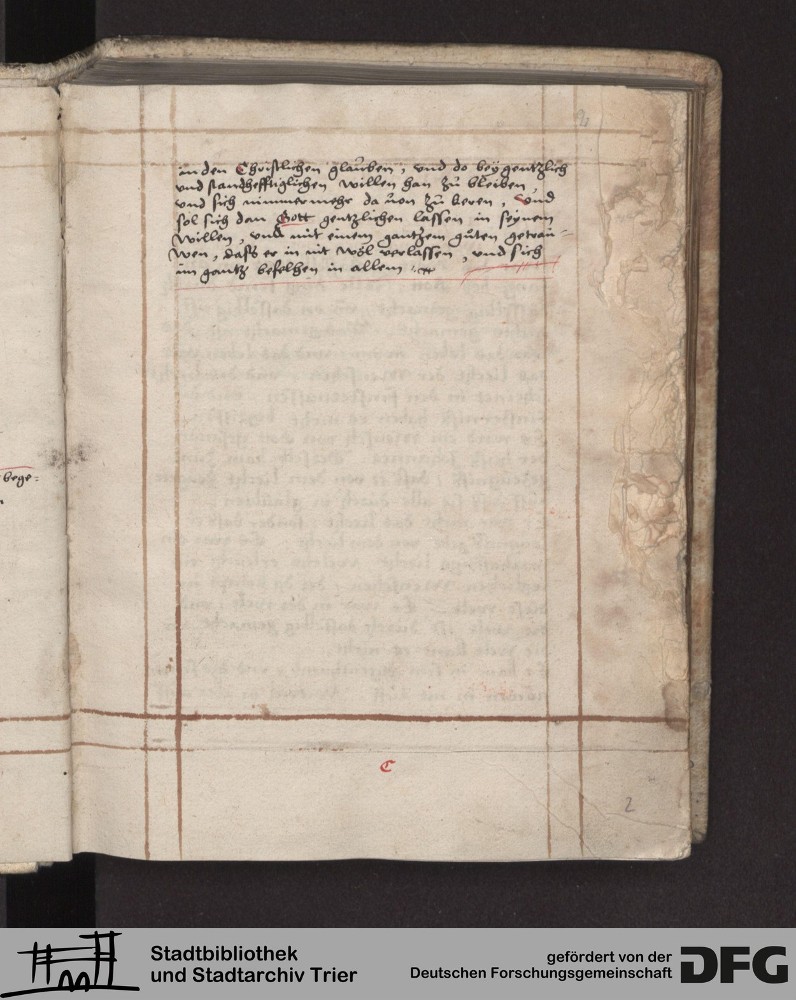 in den Christlichen glauben, vnd do bey gentzlich
vnd standhefftiglichen willen han zů bleiben,
vnd sich nimmermehr da uon zů keren, Vnd
sol sich dan Gott gentzlichen lassen in seynem
willen, vnd mit einem gantzem gůten getrau=
wen, dafs er in nit wöl verlassen, vnd sich
im gantz befelhen in allem
bege=
C
2
Stadtbibliothek
und Stadtarchiv Trier
gefördert von der
Deutschen Forschungsgemeinschaft
DFG